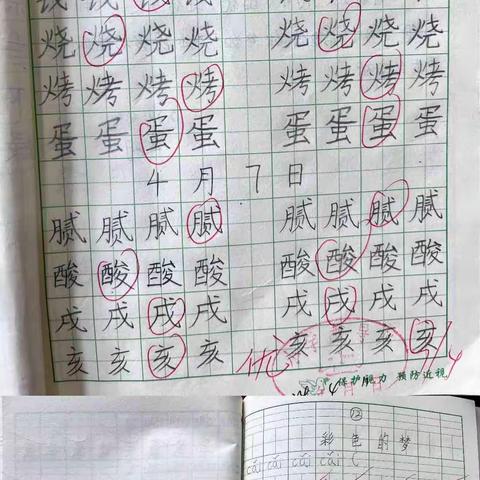 烧 烧 烧 烧 烧 烧 烧 烧
烤 烤 烤 烤 烤 烤 烤 烤
蛋 蛋 蛋 蛋 蛋 蛋 蛋 蛋
4 月 7 日
腻 腻 腻 腻 腻 腻 腻 腻
酸 酸 酸 酸 酸 酸 酸 酸
戌 戌 戌 戌 戌 戌 戌 戌
亥 亥 亥 亥 优 亥 亥 亥 亥
保护眼力 预防近视
⑫
彩色的梦
cǎi cǎi cǎi cǎi